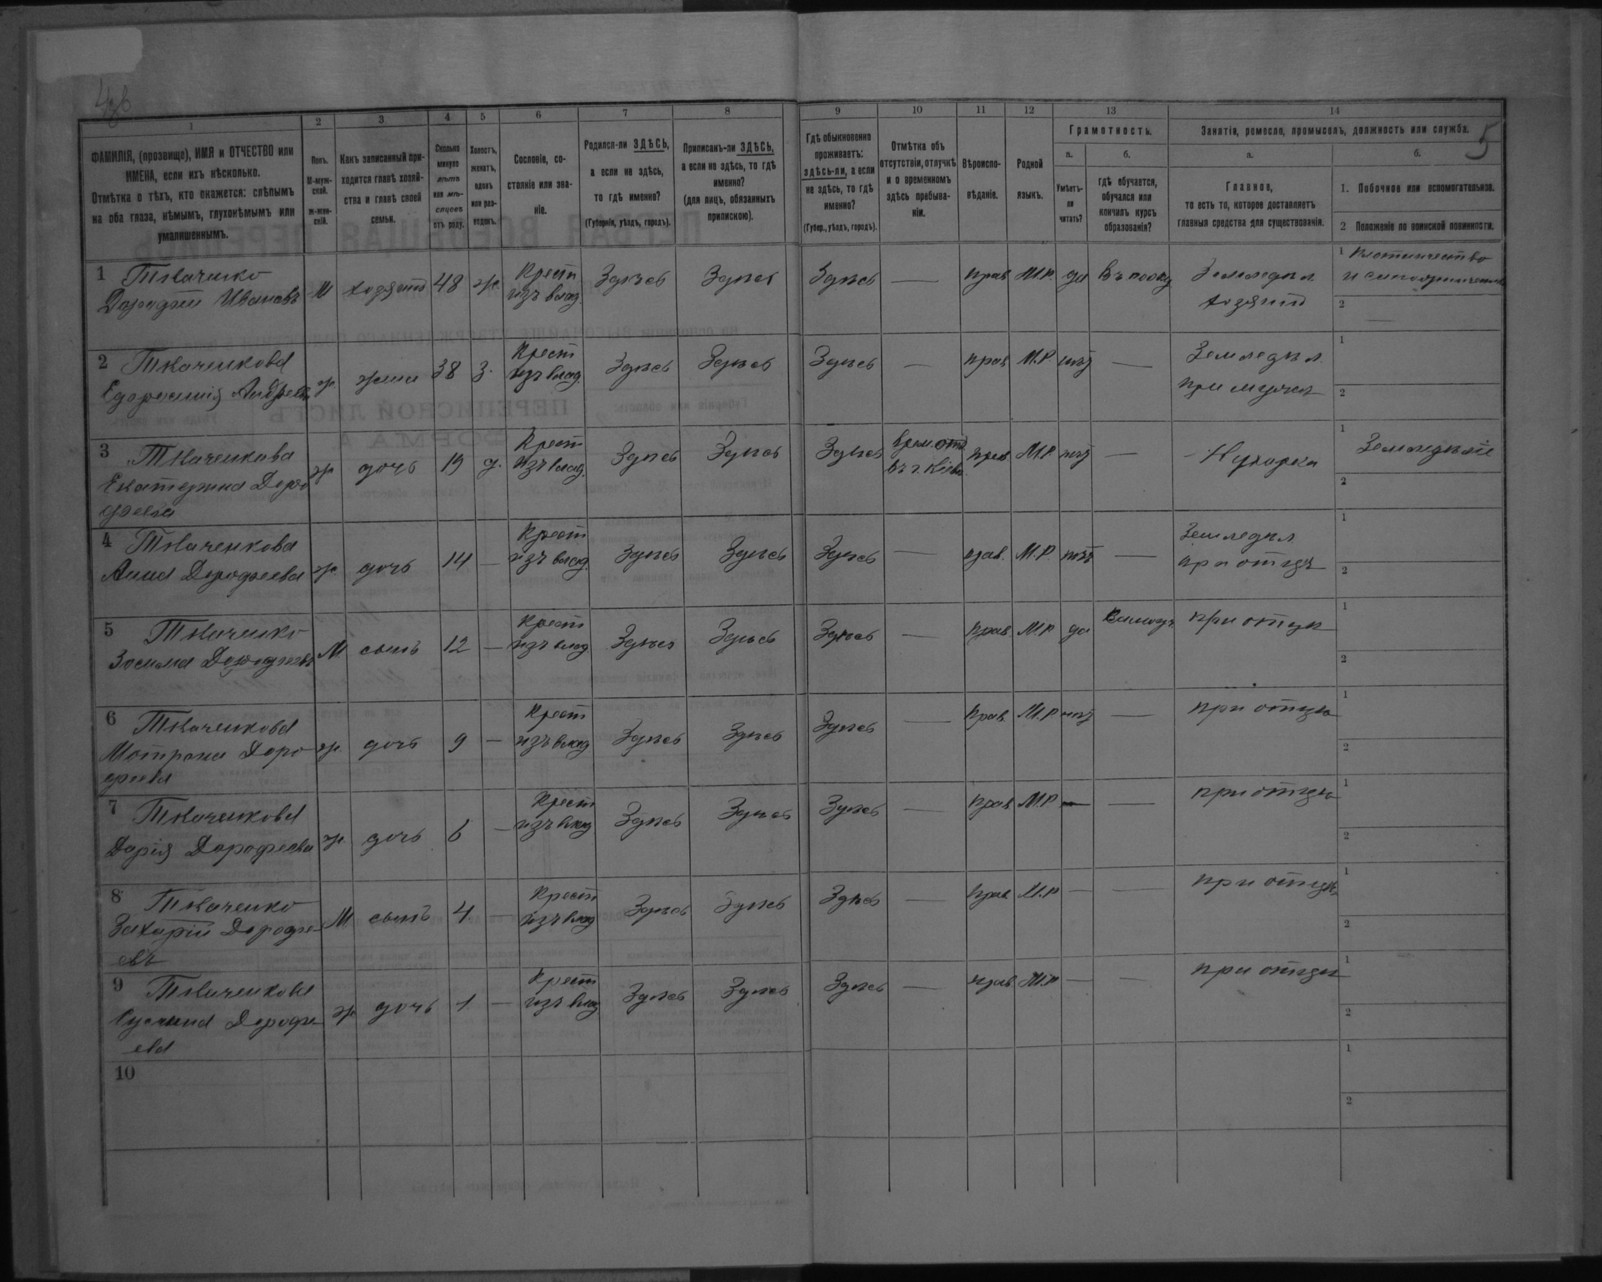 5
1 2 3 4 5 6 7 8 9 10 11 12 13 14
ФАМИЛІЯ, (прозвище), ИМЯ и ОТЧЕСТВО или
ИМЕНА, если ихъ нѣсколько.
Отмѣтка о тѣхъ, кто окажется: слѣпымъ
на оба глаза, нѣмымъ, глухонѣмымъ или
умалишеннымъ.
Полъ.
М-муж-
ской.
Ж-жен-
скій.
Какъ записанный при-
ходится главѣ хозяй-
ства и главѣ своей
семьи.
Сколько
минуло
лѣтъ
или мѣ-
сяцевъ
отъ роду.
Холостъ,
женатъ,
вдовъ
или раз-
веденъ.
Сословіе, со-
стояніе или зва-
ніе.
Родился-ли ЗДѢСЬ,
а если не здѣсь,
то гдѣ именно?
(Губернія, уѣздъ, городъ).
Приписанъ-ли ЗДѢСЬ,
а если не здѣсь, то гдѣ
именно?
(для лицъ, обязанныхъ
припискою).
Гдѣ обыкновенно
проживаетъ:
здѣсь-ли, а если
не здѣсь, то гдѣ
именно?
(Губер., уѣздъ, городъ).
Отмѣтка объ
отсутствіи, отлучкѣ
и о временномъ
здѣсь пребыва-
ніи.
Вѣроиспо-
вѣданіе.
Родной
языкъ.
Грамотность.
а.
Умѣетъ-
ли
читать?
б.
гдѣ обучается,
обучался или
кончилъ курсъ
образованія?
Занятіе, ремесло, промыселъ, должность или служба.
а.
Главное,
то есть то, которое доставляетъ
главныя средства для существованія.
б.
1. Побочное или вспомогательное.
2 Положеніе по воинской повинности.
1 Ткаченко
Дорофей Ивановъ М хозяинъ 48 ж. Крест
изъ влад Здѣсь Здѣсь Здѣсь — прав М.Р да Земледѣл
хозяинъ
1
2 —
2 Ткаченкова
Ефросинія Андреева ж жена 38 з. Крест
изъ влад Здѣсь Здѣсь Здѣсь — прав М.Р нѣтъ — Земледѣл
при мужѣ
1
2
3 Ткаченкова
Екатерина Доро
фѣева ж дочь 19 д. Крест
изъ влад. Здѣсь Здѣсь Здѣсь Врем отл
въ г. Кіевѣ прав М.Р нѣтъ — Кухарка
1 Земледѣліе
2
4 Ткаченкова
Анна Дорофеева ж дочь 14 — Крест
изъ влад. Здѣсь Здѣсь Здѣсь — прав. М.Р нѣтъ — Земледѣл
при отцѣ
1
2
5 Ткаченко
Зосима Дорофѣевъ М сынъ 12 — Крест
изъ влад Здѣсь Здѣсь Здѣсь — прав М.Р да при отцѣ
1
2
6 Ткаченкова
Мотрона Доро
фѣева ж. дочь 9 — Крест
изъ влад Здѣсь Здѣсь Здѣсь — прав М.Р нѣтъ — при отцѣ
1
2
7 Ткаченкова
Дарія Дорофеева ж. дочь 6 — Крест
изъ влад Здѣсь Здѣсь Здѣсь — прав М.Р — — при отцѣ
1
2
8 Ткаченко
Захарій Дорофе-
евъ М сынъ 4 — Крест
изъ влад Здѣсь Здѣсь Здѣсь — прав М.Р — — при отцѣ
1
2
9 Ткаченкова
Дорофе-
ева ж дочь 1 — Крест
изъ влад Здѣсь Здѣсь Здѣсь — прав М.Р — — при отцѣ
1
2
10
1
2